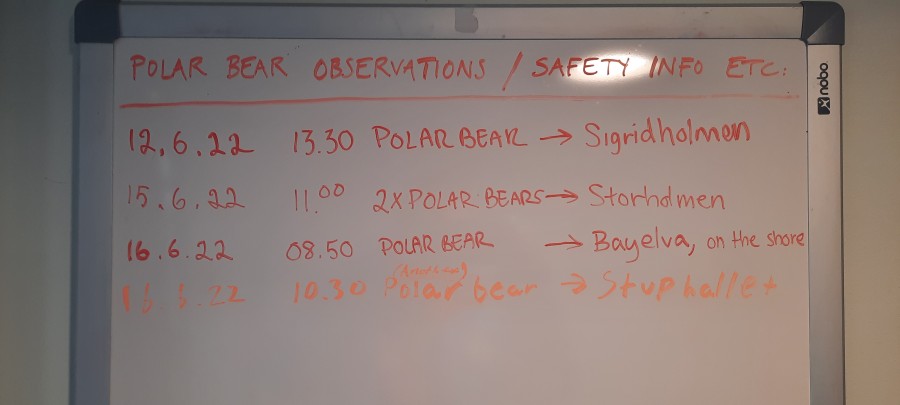 POLAR BEAR OBSERVATIONS / SAFETY INFO ETC:
nobo
12.6.22 13.30 POLAR BEAR → Sigridholmen
15.6.22 11.00 2X POLAR BEARS → Storholmen
16.6.22 08.50 POLAR BEAR → Bayelva, on the shore
(Another)
10.30 Polar bear → Stuphallet